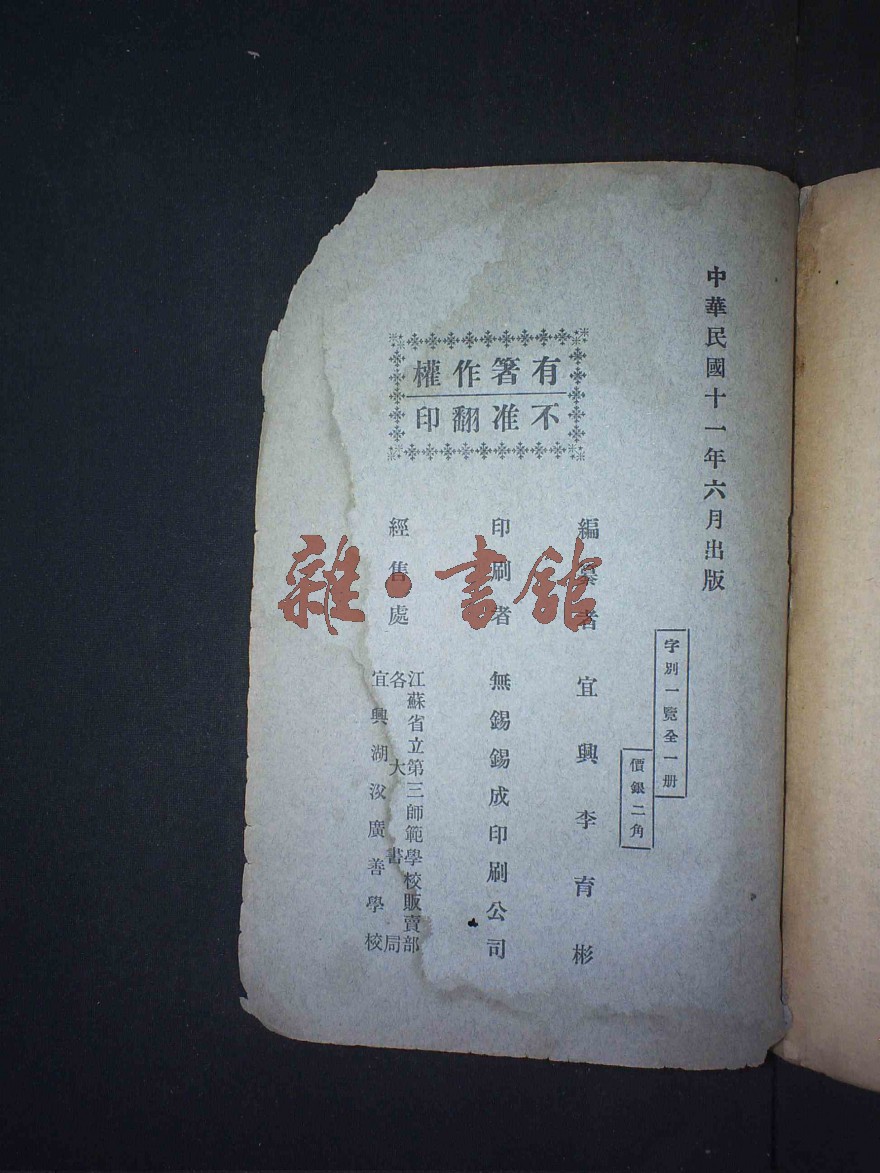 中華民國十一年六月出版
字別一覽全一册
價銀二角
有箸作權
不准翻印
編纂者 宜興李育彬
印刷者 無錫錫成印刷公司
經售處 江蘇省立第三師範學校販賣部
各大書局
宜興湖㳇廣善學校
雜·書館